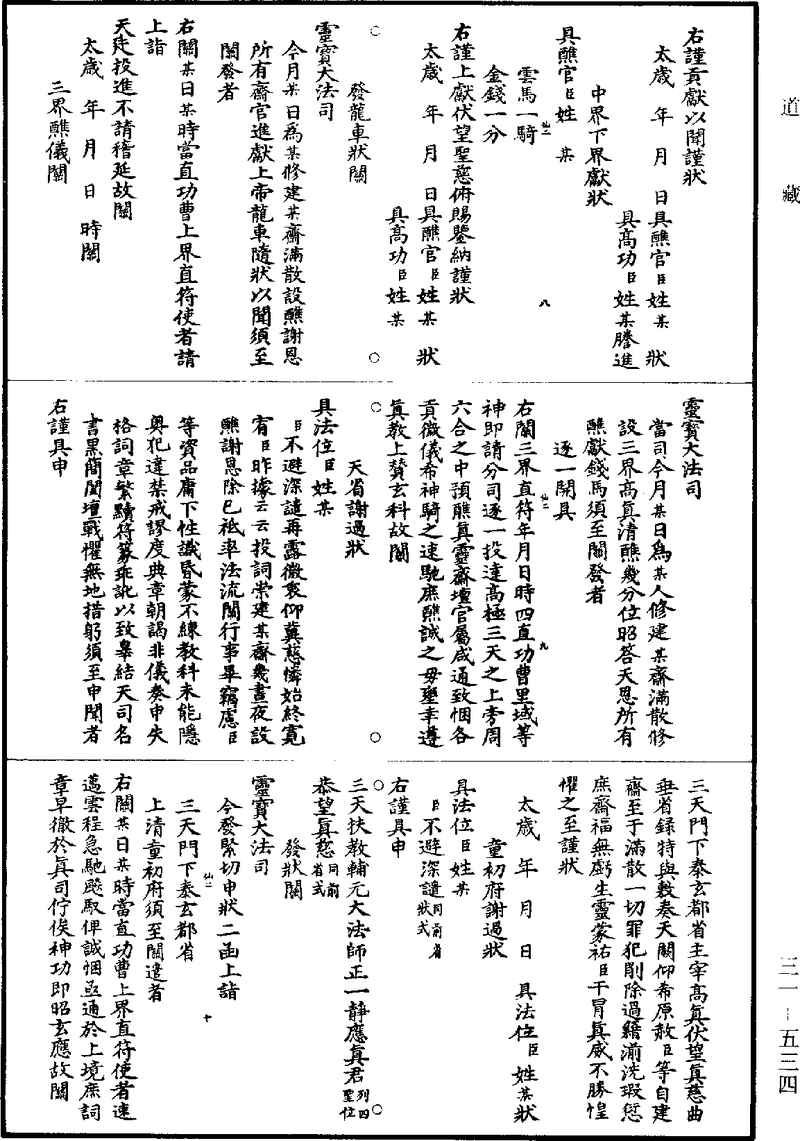 道藏
右謹貢獻以聞謹狀
太歲 年 月 日具醮官臣姓某 狀
具高功臣姓某謄進
中界下界獻狀
具醮官臣姓 某
雲馬一騎
金錢一分
右謹上獻伏望聖慈俯賜鑒納謹狀
太歲 年 月 日具醮官臣姓某 狀
具高功臣姓 某
發龍車狀關
靈寶大法司
今月某日為某修建某齋滿散設醮謝恩
所有齋官進獻上帝龍車隨狀以聞須至
關發者
右關某日某時當直功曹上界直符使者請
上詣
天廷投進不請稽延故關
太歲 年 月 日 時關
三界醮儀關
靈寶大法司
當司今月某日為某人修建某齋滿散修
設三界高真清醮幾分位昭答天恩所有
醮獻錢馬須至關發者
逐一開具
右關三界直符年月日時四直功曹里域等
神即請分司逐一投達高極三天之上旁周
六合之中預醮真靈齋壇官屬咸通致悃各
貢微儀希神騎之速馳庶醮誠之毋壅幸遵
真教上贊玄科故關
天省謝過狀
具法位臣姓某
臣不避深譴再露微衷仰冀慈憐始終寬
宥臣昨據云云投詞崇建某齋幾晝夜設
醮謝恩除已祗率法流關行事畢竊慮臣
等資品庸下性識昏蒙不練教科未能隱
奧犯違禁戒謬度典章朝謁非儀奏申失
格詞章繁黷符篆乖訛以致辜結天司名
書黑簡閱壇戰懼無地措躬須至申聞者
右謹具申
三天門下泰玄都省主宰高真伏望真慈曲
垂省錄特與敷奏天闕仰希原赦臣等自建
齋至于滿散一切罪犯削除過籍湔洗瑕愆
庶齋福無虧生靈蒙祐臣干冒真威不勝惶
懼之至謹狀
太歲 年 月 日 具法位臣姓某狀
童初府謝過狀
具法位臣姓某
臣不避深譴同前省狀式
右謹具申
三天扶教輔元大法師正一靜應真君列四聖位
恭望真慈同前省式
發狀關
靈寶大法司
今發緊切申狀二函上詣
三天門下泰玄都省
上清童初府須至關遣者
右關某日某時當直功曹上界直符使者速
邁雲程急馳飈馭俾誠悃亟通於上境庶詞
章早徹於真司佇俟神功即昭玄應故關
三一-五三四